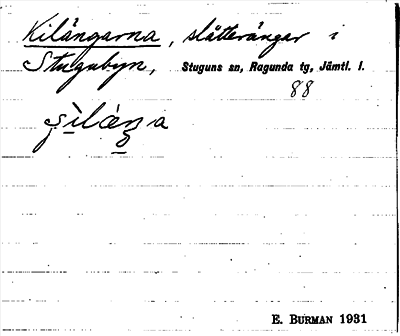 Kilängarna, slåtterängar i
Stugubyn, Stuguns sn, Ragunda tg, Jämtl. l.
88
E. BURMAN 1931